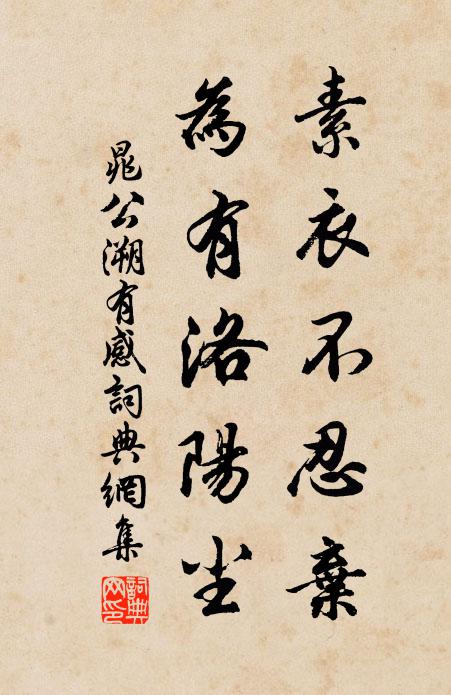 素衣不忍棄
為有洛陽尘
晁公溯有感詞典網集
詞典
网印